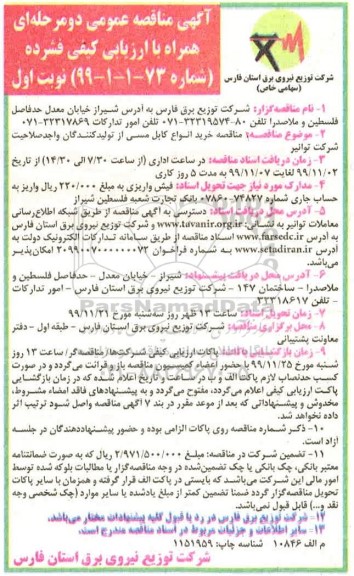 آگهی مناقصه عمومی دومرحله‌ای
همراه با ارزیابی کیفی فشرده
(شماره ۷۳-۱-۱-۹۹) نوبت اول
شرکت توزیع نیروی برق استان فارس
(سهامی خاص)
۱- نام مناقصه‌گزار: شرکت توزیع برق فارس به آدرس شیراز خیابان معدل حدفاصل
فلسطین و ملاصدرا تلفن ۸۰-۳۲۳۱۹۵۷۴-۰۷۱ تلفن امور تدارکات ۳۲۳۱۷۸۶۹-۰۷۱
۲- موضوع مناقصه: مناقصه خرید انواع کابل مسی از تولیدکنندگان واجدصلاحیت
شرکت توانیر
۳- زمان دریافت اسناد مناقصه: در ساعت اداری (از ساعت ۷/۳۰ الی ۱۴/۳۰) از تاریخ
۹۹/۱۱/۰۲ لغایت ۹۹/۱۱/۰۷ به مدت ۵ روز کاری
۴- مدارک مورد نیاز جهت تحویل اسناد: فیش واریزی به مبلغ ۲۲۰/۰۰۰ ریال واریز به
حساب جاری شماره ۰۷۸۶۰۰۷۴۸۲۷ بانک تجارت شعبه فلسطین شیراز
۵- آدرس محل دریافت اسناد: دسترسی به آگهی مناقصه از طریق شبکه اطلاع‌رسانی
معاملات توانیر به نشانی: www.tavanir.org.ir و شرکت توزیع نیروی برق استان فارس
به آدرس www.farsedc.ir اسناد مناقصه از طریق سامانه تدارکات الکترونیک دولت به
آدرس www.setadiran.ir به شماره فراخوان ۲۰۹۹۰۰۷۰۰۰۰۰۰۰۷۳ امکان‌پذیر
می‌باشد.
۶- آدرس محل دریافت پیشنهادات: شیراز - خیابان معدل - حدفاصل فلسطین و
ملاصدرا - ساختمان ۱۴۷ - شرکت توزیع نیروی برق استان فارس - امور تدارکات
- تلفن ۳۲۳۱۸۶۱۷
۷- زمان تحویل اسناد: ساعت ۱۳ ظهر روز سه‌شنبه مورخ ۹۹/۱۱/۲۱
۸- محل برگزاری مناقصه: شرکت توزیع نیروی برق استان فارس - طبقه اول - دفتر
معاونت پشتیبانی
۹- زمان بازگشایی پاکات: پاکات ارزیابی کیفی شرکت‌ها/ مناقصه‌گر/ ساعت ۱۳ روز
شنبه مورخ ۹۹/۱۱/۲۵ با حضور اعضاء کمیسیون مناقصه باز و قرائت می‌گردد و در صورت
کسب حدنصاب لازم پاکت الف و ب در ساعت و تاریخ اعلام شده که در زمان بازگشایی
پاکت ارزیابی کیفی اعلام می‌گردد، مفتوح می‌گردد و به پیشنهادهای فاقد امضاء مشروط،
مخدوش و پیشنهاداتی که بعد از موعد مقرر در بند ۷ آگهی مناقصه واصل شود ترتیب اثر
داده نخواهد شد.
۱۰- ذکر شماره مناقصه روی پاکات الزامی بوده و حضور پیشنهاددهندگان در جلسه
آزاد است.
۱۱- تضمین شرکت در مناقصه: مبلغ ۲/۹۷۱/۵۰۰/۰۰۰ ریال که به صورت ضمانتنامه
معتبر بانکی، چک بانکی یا چک تضمین‌شده در وجه مناقصه‌گزار یا مطالبات بلوکه شده توسط
امور مالی این شرکت می‌باشد که بایستی در پاکت الف قرار گرفته و همزمان با سایر پاکات
تحویل مناقصه‌گزار گردد ضمنا تضمین کمتر از مبلغ یادشده یا سایر موارد (چک شخصی وجه
نقد و...) قابل قبول نمی‌باشد.
۱۲- شرکت توزیع برق فارس در رد یا قبول کلیه پیشنهادات مختار می‌باشد.
۱۳- سایر اطلاعات و جزئیات مربوط در اسناد مناقصه مندرج است.
۱۰۸۴۶ م الف شناسه چاپ: ۱۱۵۱۹۵۹
شرکت توزیع نیروی برق استان فارس